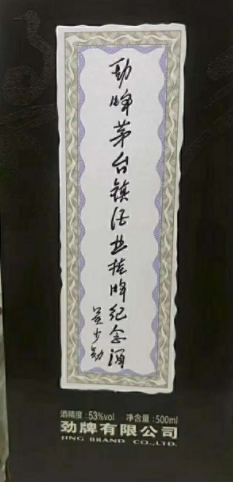 劲牌茅台镇酒业挂牌纪念酒
吴少勋
酒精度:53%vol 净含量:500ml
劲牌有限公司
JING BRAND CO.,LTD.